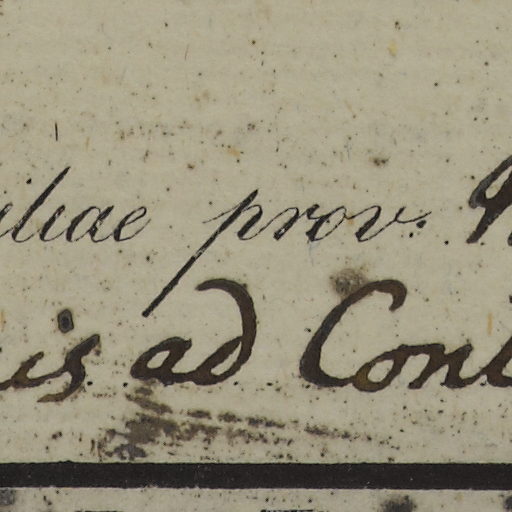 iliae prov.
is ad Cont